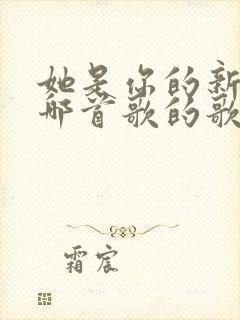 她是你的新
那首歌的歌
霜宸